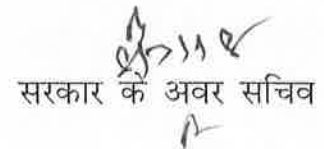 सरकार के अवर सचिव